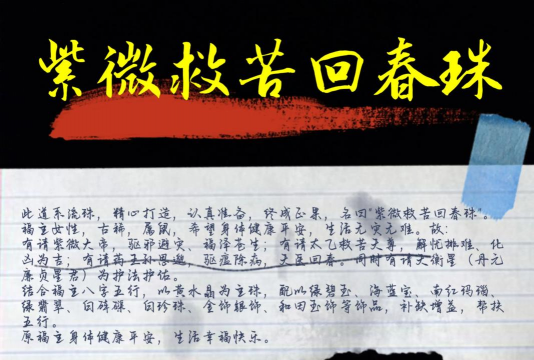 紫微救苦回春珠
此道系流珠，精心打造，认真准备，终成正果，名曰“紫微救苦回春珠”。
福主女性，古稀，属鼠，希望身体健康平安，生活无灾无难。故：
有请紫微大帝，驱邪避灾、福泽苍生；有请太乙救苦天尊，解忧排难、化
凶为吉；有请药王孙思邈，驱瘟除病，大医回春。同时有请天衡星（丹元
廉贞星君）为护法护佑。
结合福主八字五行，以黄水晶为主珠，配以绿碧玉、海蓝宝、南红玛瑙、
绿翡翠、白砗磲、白珍珠、金饰银饰、和田玉饰等饰品，补缺增益，帮扶
五行。
原福主身体健康平安，生活幸福快乐。